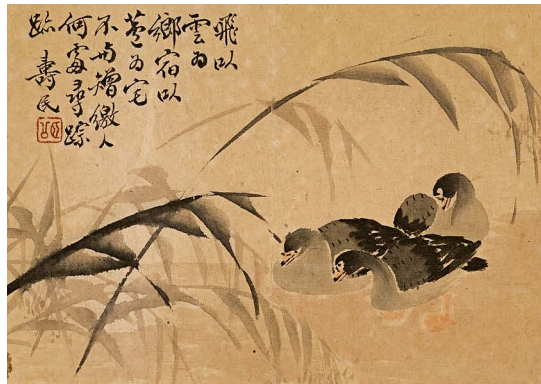 飛以
雲为
鄉宿以
蘆为宅
不与矰繳人
何處尋踪
跡 壽民